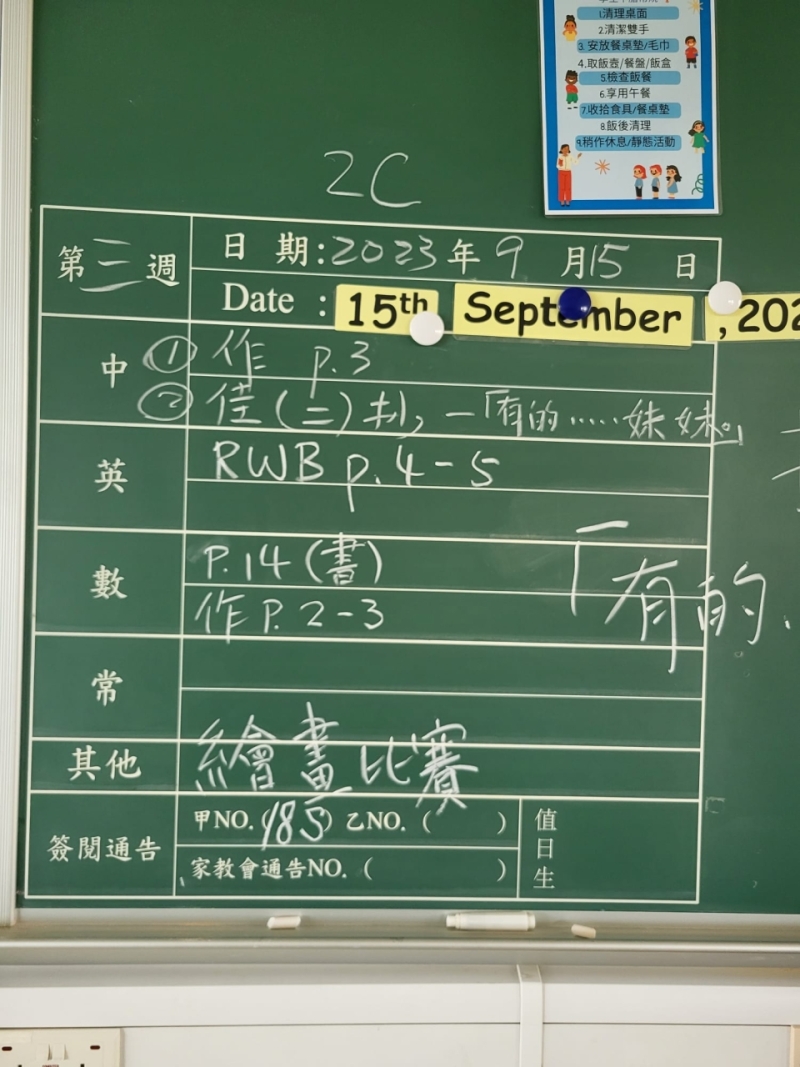 1.清理桌面
2.清潔雙手
3.安放餐桌墊/毛巾
4.取飯壺/餐盤/飯盒
5.檢查飯餐
6.享用午餐
7.收拾食具/餐桌墊
8.飯後清理
9.稍作休息/靜態活動
2C
第三週
日期:2023年9月15日
Date : 15th September, 202
中
① 作 p.3
② 佳(二)扌, 一「有的……妹妹。」
英
RWB p.4-5
數
P.14(書)
作P.2-3
「有的.
常
其他
繪畫比賽
簽閱通告
甲NO.(18S) 乙NO.( )
家教會通告NO.( )
值日生